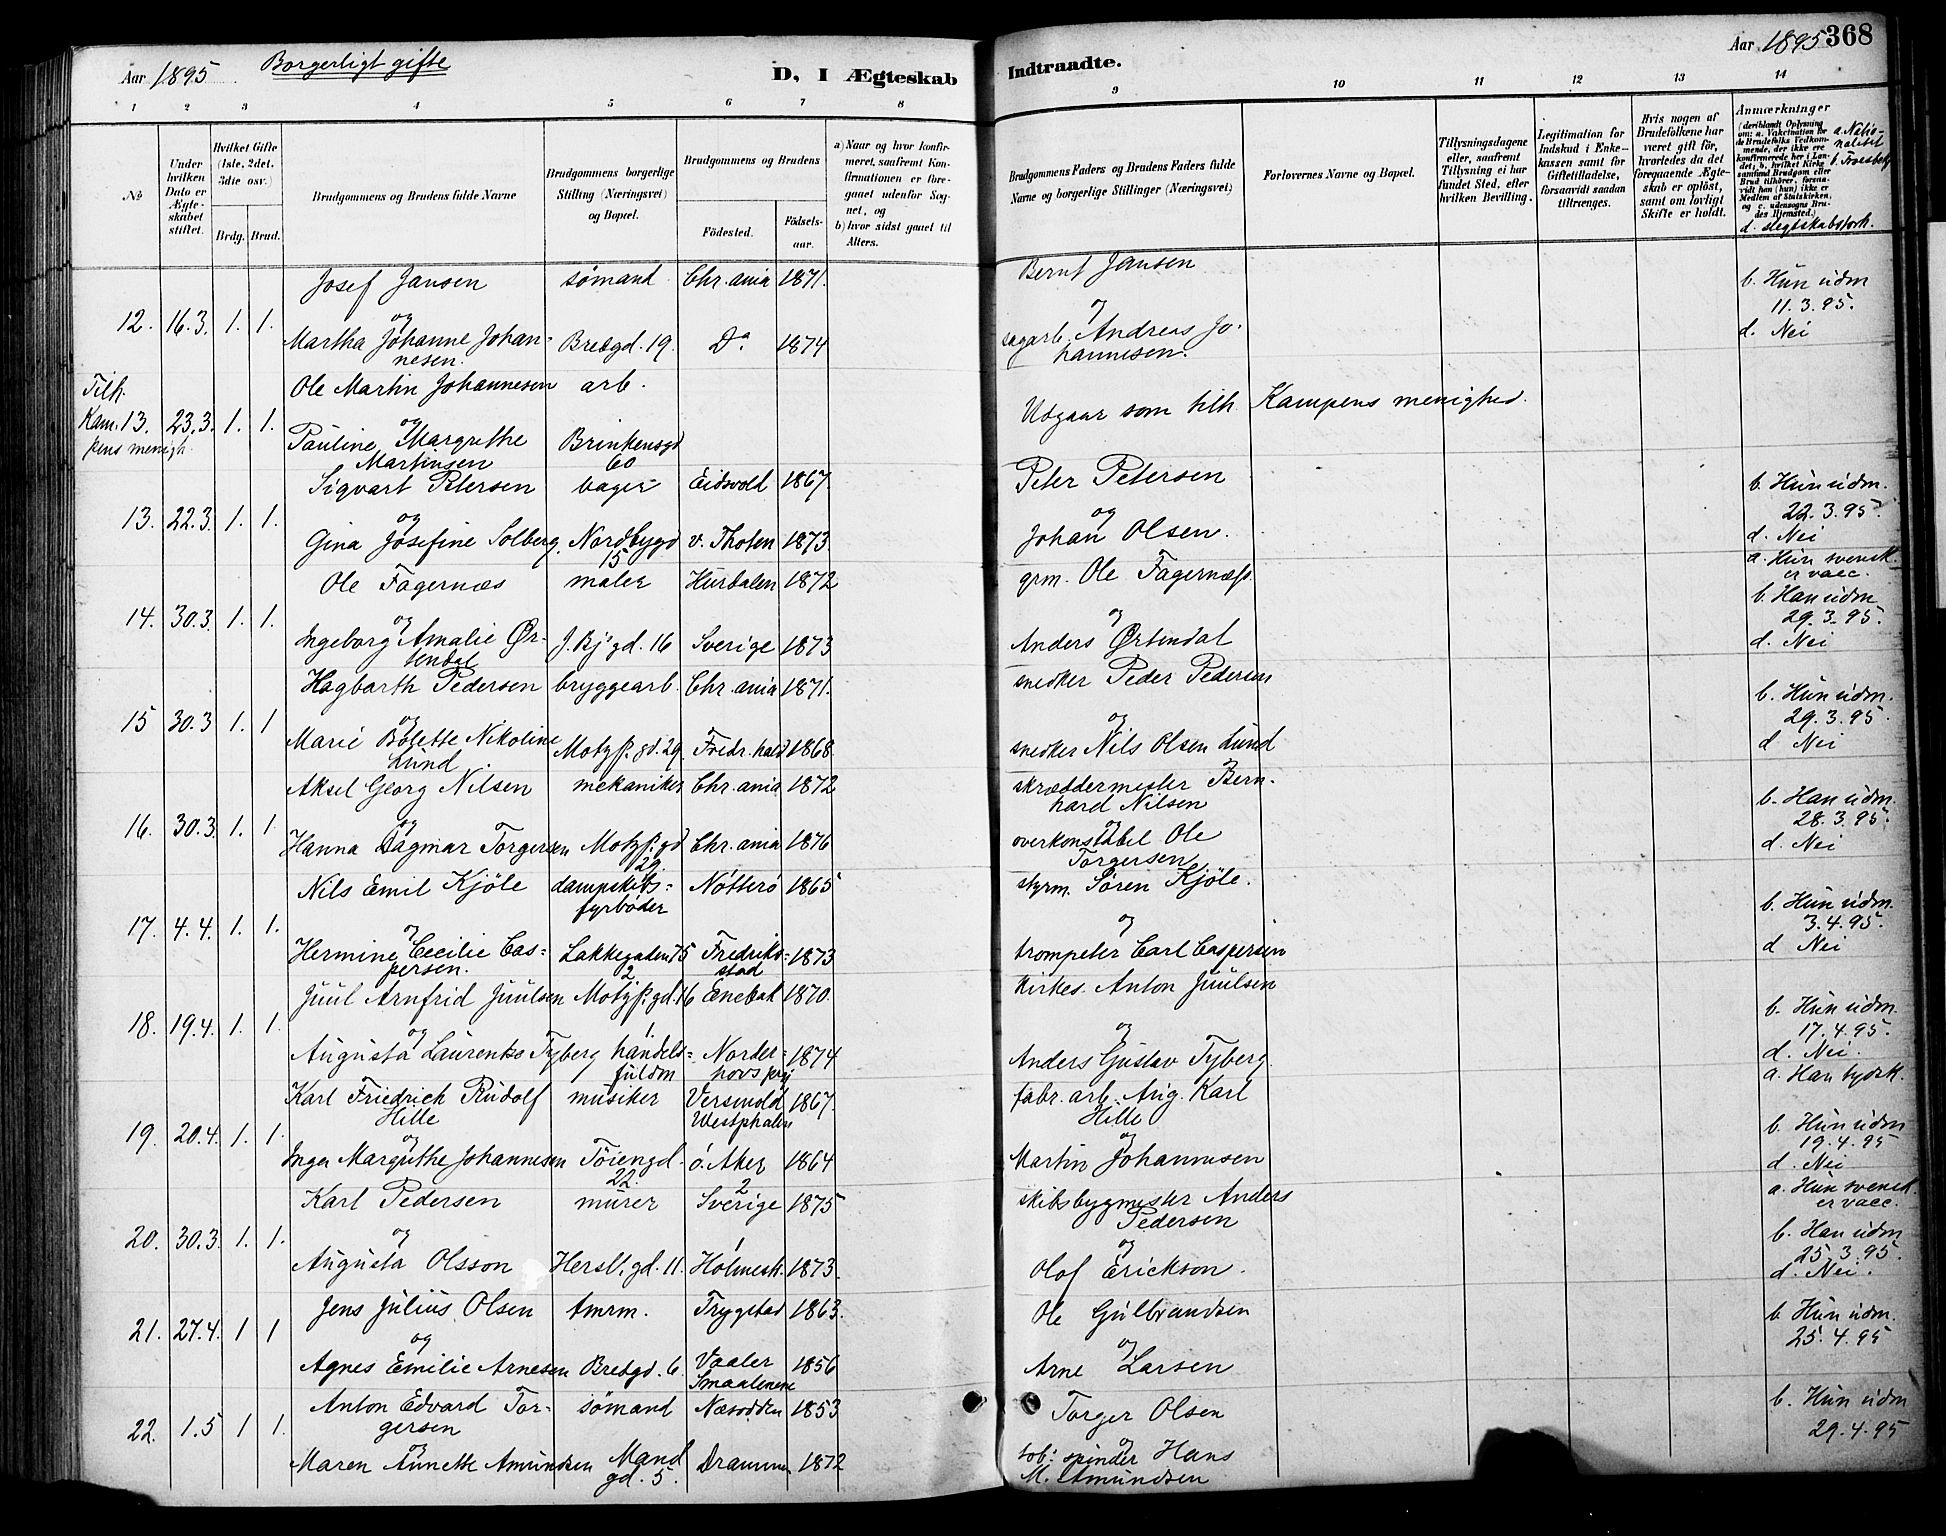 Aar 1895. Borgerligt gifte D, I Ægteskab
Indtraadte. Aar 1895 368
1 2 3 4 5 6 7 8
9 10 11 12 13 14
No
Under hvilken Dato er Ægteskabet stiftet.
Hvilket Gifte (1ste, 2det, 3die osv.)
Brdg. Brud.
Brudgommens og Brudens fulde Navne
Brudgommens borgerlige Stilling (Næringsvei) og Bopæl.
Brudgommens og Brudens
Födested. Födsels-aar.
a) Naar og hvor konfirmeret, saafremt Konfirmationen er foregaaet udenfor Sognet, og
b) hvor sidst gaaet til Alters.
Brudgommens Faders og Brudens Faders fulde Navne og borgerlige Stillinger (Næringsvei)
Forlovernes Navne og Bopæl.
Tillysningsdagene eller, saafremt Tillysning ei har fundet Sted, efter hvilken Bevilling.
Legitimation for Indskud i Enkekassen samt for Giftetilladelse, forsaavidt saadan tiltrænges.
Hvis nogen af Brudefolkene har været gift för, hvorledes da det foregaaende Ægteskab er oplöst, samt om lovligt Skifte er holdt.
Anmærkninger
(deriblandt Oplysning om: a. Vakcination for de Brudefolks Vedkommende, der ikke ere konfirmerede her i Landet; b. hvilket Kirkesamfund Brudgom eller Brud tilhörer, forsaavidt han (hun) ikke er Medlem af Statskirken, og c. udensogns Brudes Hjemsted.)
a. Nationalitet
b. Troesbekj
d. slegtskabsforh.
Josef Jansen sømand Chr.ania 1871. Bernt Jansen b. Hun udm
12. 16.3. 1. 1. og og 11.3.95.
Martha Johanne Johannesen. Bredgd. 19. Do 1874 sagarb. Andreas Johannesen. d. Nei
Tilh. Ole Martin Johannesen arb.
Kam- 13. 23.3. 1. 1. og Udgaar som tilh. Kampens menighed.
pens menigh. Pauline Margrethe Martinsen Brinkensgd 60
Sigvart Petersen bager Eidsvold 1867. Peter Petersen b. Hun udm.
13. 22.3. 1. 1. og og 22.3.95.
Gina Josefine Solberg. Nordbygd 15 v. Thoten 1873. Johan Olsen. d. Nei
Ole Fagernæs maler Hurdalen 1872 grm. Ole Fagernæss. a. Hun svensk. er vacc.
14. 30.3. 1. 1. og og b. Han udm 29.3.95.
Ingeborg Amalie Ørtendal J. Bj' gd. 16 Sverige 1873 Anders Ørtendal d. Nei
Hagbarth Pedersen bryggearb. Chr.ania 1871. snedker Peder Pedersen b. Hun udm.
15 30.3 1. 1 og og 29.3.95.
Marie Bolette Nikoline Lund Motzf. gd. 29. Fredr.hald 1868. snedker Nils Olsen Lund d Nei
Aksel Georg Nilsen mekaniker Chr.ania 1872 skræddermester Bernhard Nilsen b. Han udm.
16. 30.3. 1. 1 og og 28.3.95.
Hanna Dagmar Torgersen Motzf. gd 29 Chr.ania 1876 overkonstabel Ole Torgersen d. Nei
Nils Emil Kjöle dampskibs-fyrbøder Nötterö 1865 styrm. Sören Kjöle. b. Hun udm.
17. 4.4. 1. 1. og og 3.4.95.
Hermine Cecilie Caspersen. Lakkegaden 75 2 Fredrikstad 1873 trompeter Carl Caspersen d Nei
Juul Arnfrid Juulsen Motzf. gd. 16 Enebak 1870. kirkes. Anton Juulsen b. Hun udm
18. 19.4. 1. 1. og og 17.4.95.
Augusta Laurentse Tyberg handelsfuldm Norderhovs prg 1874 Anders Gustav Tyberg. d. Nei.
Karl Friedrich Rudolf Hille musiker Versmold Westphalen 1867. fabr. arb. Aug. Karl Hille a. Han tydsk.
19. 20.4. 1. 1. og og b. Hun udm 19.4.95
Inga Margrethe Johannesen Töiengd. 22. ö. Aker 1864 Martin Johannesen d. Nei
Karl Pedersen murer Sverige 1875 skibsbygmester Anders Pedersen a. Hun svensk. er vacc.
20. 30.3. 1. 1. og og b. Han udm 25.3.95.
Augusta Olsson Hersl. gd. 11. Holmest. 1873. Olof Erickson. d. Nei.
Jens Julius Olsen tmrm. Trygstad 1863. Ole Gulbrandsen b. Hun udm.
21. 27.4. 1 1 og og 25.4.95
Agnes Emilie Arnesen Bredgd. 6. Vaaler Smaalenene 1856 Arne Larsen
Anton Edvard Torgersen sømand Næsodden 1853 Torger Olsen b. Hun udm
22. 1.5 1 1. og og 29.4.95
Maren Annette Amundsen Mandgd. 5. Drammen 1872 tob: spinder Hans M. Amundsen